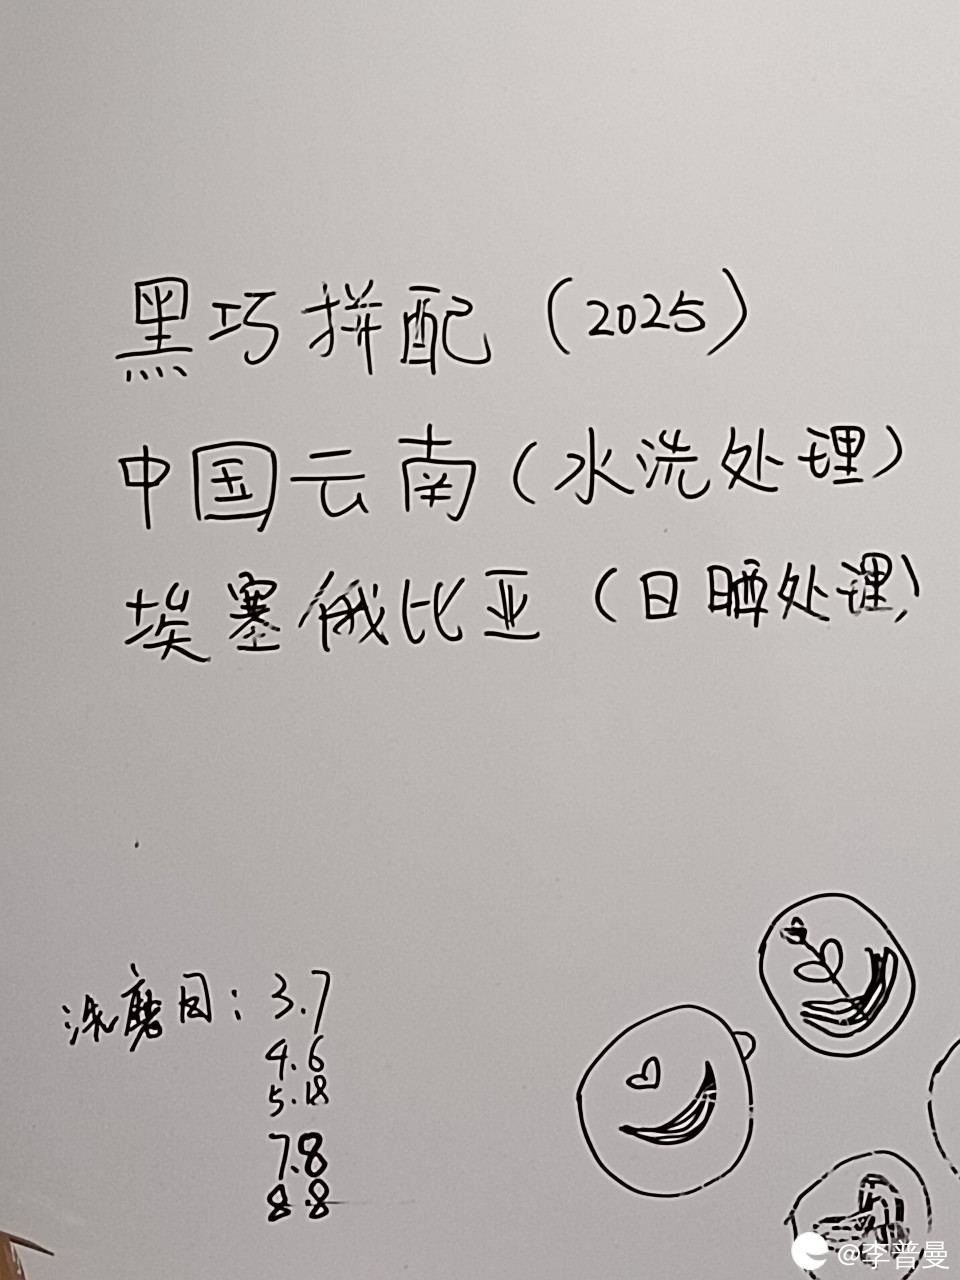 黑巧拼配（2025）
中国云南（水洗处理）
埃塞俄比亚（日晒处理）
洗磨日：3.7
4.6
5.18
7.8
8.8
@李普曼